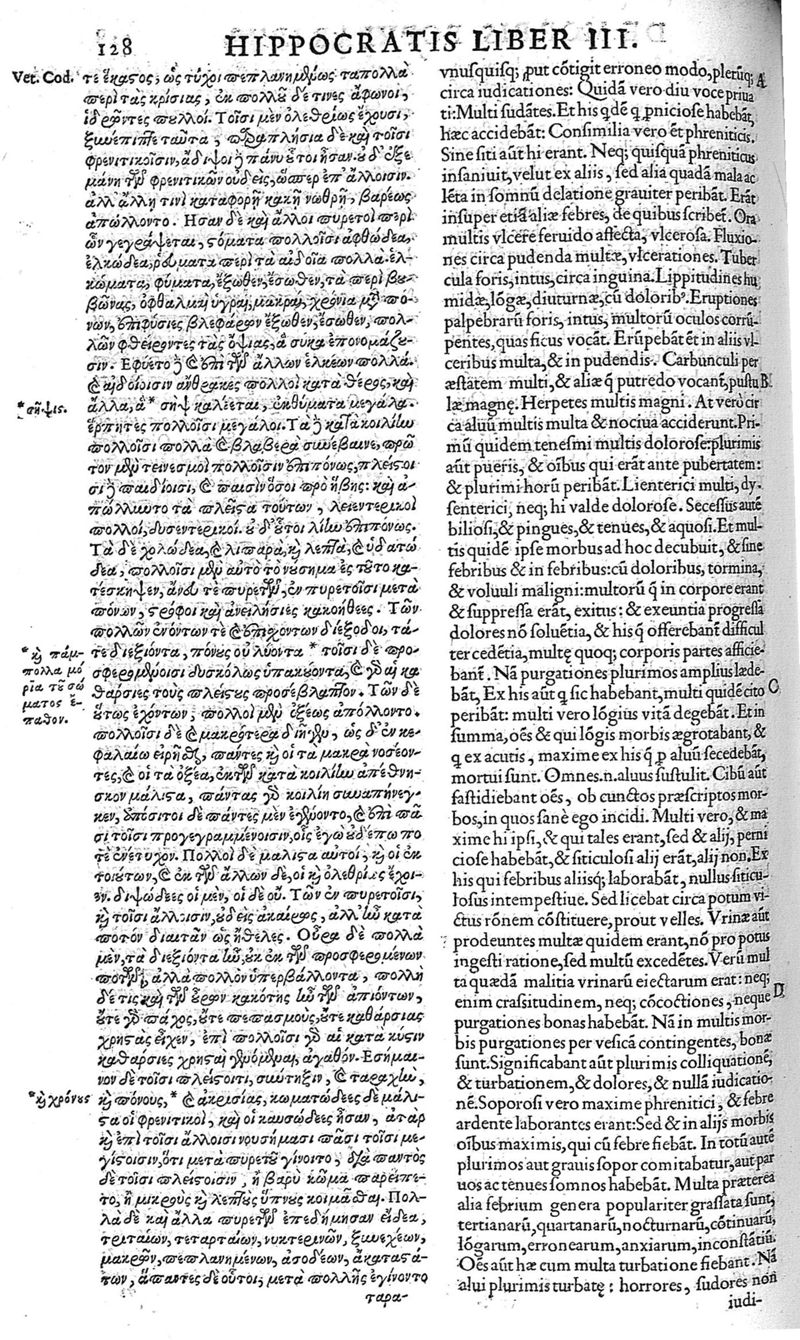 128 HIPPOCRATIS LIBER III.
Vet. Cod.
τε ἕκαστος, ὡς τύχοι πεπλανημένως ταπολλὰ
περὶ τὰς κρίσιας, ἐκ πολλοῦ δέ τινες ἄφωνοι,
ἱδρῶντες πολλοί. Τοῖσι μὲν ὀλεθρίως ἔχουσι,
ξυνέπιπτε ταῦτα, παραπλήσια δὲ καὶ τοῖσι
φρενιτικοῖσιν, ἄδιψοι δὲ πάνυ οὗτοι ἦσαν. οὐδ' ἐξε
μάνη τῶν φρενιτικῶν οὐδεὶς, ὥσπερ ἐπ' ἄλλοισιν.
ἀλλ' ἄλλη τινὶ καταφορῇ κακῇ νωθρῇ, βαρέως
ἀπώλλοντο. Ησαν δὲ καὶ ἄλλοι πυρετοὶ περὶ
ὧν γεγράψεται, στόματα πολλοῖσι ἀφθώδεα,
ἑλκώδεα, ῥεύματα περὶ τὰ αἰδοῖα πολλὰ. ἑλ-
κώματα, φύματα, ἔξωθεν, ἔσωθεν, τὰ περὶ βου-
βῶνας, ὀφθαλμίαι ὑγραὶ, μακραὶ, χρόνια μετὰ πό-
νων, ἐπιφύσιες βλεφάρων ἔξωθεν, ἔσωθεν, πολ-
λῶν φθείροντες τὰς ὄψιας, ἃ σῦκα ἐπονομάζου-
σιν. Εφύετο δὲ καὶ ἐπὶ τῶν ἄλλων ἑλκέων πολλά.
καὶ αἰδοίοισιν ἄνθρακες πολλοὶ κατὰ θέρος, καὶ
ἄλλα, ἃ * σὴψ καλέεται, ἐκθύματα μεγάλα.
* σῆψις.
ἕρπητες πολλοῖσι μεγάλοι. Τὰ δὲ κατὰ κοιλίην
πολλοῖσι πολλὰ καὶ βλαβερὰ συνέβαινε, πρῶ
τον μὲν τεινεσμοὶ πολλοῖσιν ἐπιπόνως, πλείστοι
σι δὲ παιδίοισι, καὶ πᾶσιν ὅσοι πρὸ ἥβης: καὶ ἀ-
πώλλυντο τὰ πλεῖστα τούτων, λειεντερικοὶ
πολλοὶ, δυσεντερικοί. οὐδ' οὗτοι λίην ἐπιπόνως.
Τὰ δὲ χολώδεα, καὶ λιπαρὰ, καὶ λεπτὰ, καὶ ὑδατώ
δεα, πολλοῖσι μὲν αὐτὸ τὸ νούσημα ἐς τοῦτο κα-
τέσκηψεν, ἄνευ τε πυρετῶν, ἐν πυρετοῖσι μετὰ
πόνων, στρόφοι καὶ ἀνειλήσιες κακοήθεες. Τῶν
πολλῶν ἐνόντων τε καὶ ἐπισχόντων διέξοδοι, τά-
τε διεξιόντα, πόνους οὐ λύοντα * τοῖσί δὲ προ-
* καὶ πάμ-
πολλα μό
ρια τοῦ σώ
ματος ἔ-
παθον.
σφερομένοισι δυσκόλως ὑπακούοντα, καὶ γὰρ αἱ κα
θάρσιες τοὺς πλείστους προσέβλαπτον. Τῶν δὲ
οὕτως ἐχόντων, πολλοὶ μὲν ὀξέως ἀπόλλοντο.
πολλοῖσι δὲ καὶ μακρότερα διῆγεν, ὡς δ' ἐν κε-
φαλαίῳ εἰρῆσθαι, πάντες καὶ οἱ τὰ μακρὰ νοσέον-
τες, καὶ οἱ τὰ ὀξέα, ἐκ τῶν κατὰ κοιλίην ἀπέθνη-
σκον μάλιστα, πάντας γὰρ κοιλίη συναπήνεγ-
κεν, ἀπόσιτοι δὲ πάντες μὲν ἐγένοντο, καὶ ἐπὶ πᾶ
σι τοῖσι προγεγραμμένοισιν, οἷς ἐγὼ οὐδέπω πο
τὲ ἐνέτυχον. Πολλοὶ δὲ μάλιστα αὐτοὶ, καὶ οἱ ἐκ
τουτέων, καὶ ἐκ τῶν ἄλλων δὲ, οἳ καὶ ὀλεθρίως ἔχοι-
εν. διψώδεες οἱ μὲν, οἱ δὲ οὔ. Τῶν ἐν πυρετοῖσι,
καὶ τοῖσι ἄλλοισιν, οὐδεὶς ἀκαίρως, ἀλλ' ἦν κατὰ
ποτὸν διαιτᾶν ὡς ἤθελες. Οὖρα δὲ πολλὰ
μὲν, τὰ διεξιόντα ἦν, οὐκ ἐκ τῶν προσφερομένων
ποτῶν, ἀλλὰ πολλὸν ὑπερβάλλοντα, πολλὴ
δέ τις καὶ τῶν οὔρων κακότης ἦν τῶν ἀπιόντων,
οὔτε γὰρ πάχος, οὔτε πεπασμοὺς, οὔτε καθάρσιας
χρηστὰς εἶχεν, ἐπὶ πολλοῖσι γὰρ αἱ κατὰ κύστιν
καθάρσιες χρησταὶ γενόμεναι, ἀγαθόν. Εσήμαι-
νον δὲ τοῖσι πλείστοισι, σύντηξιν, καὶ ταραχὴν,
καὶ πόνους, * καὶ ἀκρισίας, κωματώδεες δὲ μάλι-
* καὶ χρόνους
στα οἱ φρενιτικοὶ, καὶ οἱ καυσώδεες ἦσαν, ἀτὰρ
καὶ ἐπὶ τοῖσι ἄλλοισι νουσήμασι πᾶσι τοῖσι με-
γίστοισιν, ὅτι μετὰ πυρετοῦ γίνοιτο, διὰ παντὸς
δὲ τοῖσι πλείστοισιν, ἢ βαρὺ κῶμα παρείπε-
το, ἢ μικροὺς καὶ λεπτοὺς ὕπνους κοιμᾶσθαι. Πολ-
λὰ δὲ καὶ ἄλλα πυρετῶν ἐπεδήμησαν εἴδεα,
τριταίων, τεταρταίων, νυκτερινῶν, ξυνεχέων,
μακρῶν, πεπλανημένων, ἀσοδέων, ἀκαταστά-
των, ἅπαντες δὲ οὗτοι, μετὰ πολλῆς ἐγίνοντο
ταρα-
vnusquisq; ,put cōtigit erroneo modo, plerūq; A
circa iudicationes: Quidā vero diu voce priua
ti: Multi sudātes. Et his qdē q perniciose habebāt,
hæc accidebāt: Consimilia vero et phreniticis.
Sine siti aūt hi erant. Neq; quisquā phreniticus
insaniuit, velut ex aliis, sed alia quadā mala ac
lēta in somnū delatione grauiter peribāt. Erāt
insuper etiā aliæ febres, de quibus scribet. Ora
multis vlcere feruido affecta, vlcerosa. Fluxio-
nes circa pudenda multæ, vlcerationes. Tuber
cula foris, intus, circa inguina. Lippitudines hu
midæ, lōgæ, diuturnæ, cū doloribꝰ. Eruptiones
palpebrarū foris, intus, multorū oculos corrū-
pentes, quas ficus vocāt. Erūpebāt et in aliis vl-
ceribus multa, & in pudendis. Carbunculi per
æstatem multi, & aliæ q putredo vocant, pustu B
læ magnę. Herpetes multis magni. At vero cir
ca aluū multis multa & nociua acciderunt. Pri-
mū quidem tenesmi multis dolorose: plurimis
aūt pueris, & oībus qui erāt ante pubertatem:
& plurimi horū peribāt. Lienterici multi, dy-
senterici, neq; hi valde dolorose. Secessus autē
biliosi, & pingues, & tenues, & aquosi. Et mul-
tis quidē ipse morbus ad hoc decubuit, & sine
febribus & in febribus: cū doloribus, tormina,
& voluuli maligni: multorū q̄ in corpore erant
& suppressa erāt, exitus: & exeuntia progressa
dolores nō soluētia, & his q offerebant difficul
ter cedētia, multę quoq; corporis partes afficie-
bant. Nā purgationes plurimos amplius læde-
bāt, Ex his aūt q sic habebant, multi quidē cito C
peribāt: multi vero lōgius vitā degebāt. Et in
summa, oēs & qui lōgis morbis ægrotabant, &
q ex acutis, maxime ex his q p aluū secedebāt,
mortui sunt. Omnes .n. aluus sustulit. Cibū aūt
fastidiebant oēs, ob cunctos præscriptos mor-
bos, in quos sanè ego incidi. Multi vero, & ma
xime hi ipsi, & qui tales erant, sed & alij, perni
ciose habebāt, & siticulosi alij erāt, alij non. Ex
his qui febribus aliisq; laborabāt, nullus siticu-
losus intempestiue. Sed licebat circa potum vi-
ctus rōnem cōstituere, prout velles. Vrinæ aūt
prodeuntes multæ quidem erant, nō pro potus
ingesti ratione, sed multū excedētes. Verū mul
ta quædā malitia vrinarū eiectarum erat: neq; D
enim crassitudinem, neq; cōcoctiones, neque
purgationes bonas habebāt. Nā in multis mor-
bis purgationes per vesicā contingentes, bonæ
sunt. Significabant aūt plurimis colliquationē,
& turbationem, & dolores, & nullā iudicatio-
nē. Soporosi vero maxime phrenitici, & febre
ardente laborantes erant: Sed & in alijs morbis
oībus maximis, qui cū febre fiebāt. In totū autē
plurimos aut grauis sopor comitabatur, aut par
uos ac tenues somnos habebāt. Multa præterea
alia febrium genera populariter grassata sunt,
tertianarū, quartanarū, nocturnarū, cōtinuarū,
lōgarum, erronearum, anxiarum, inconstātiū.
Oēs aūt hæ cum multa turbatione fiebant. Nā
alui plurimis turbatę: horrores, sudores non
iudi-